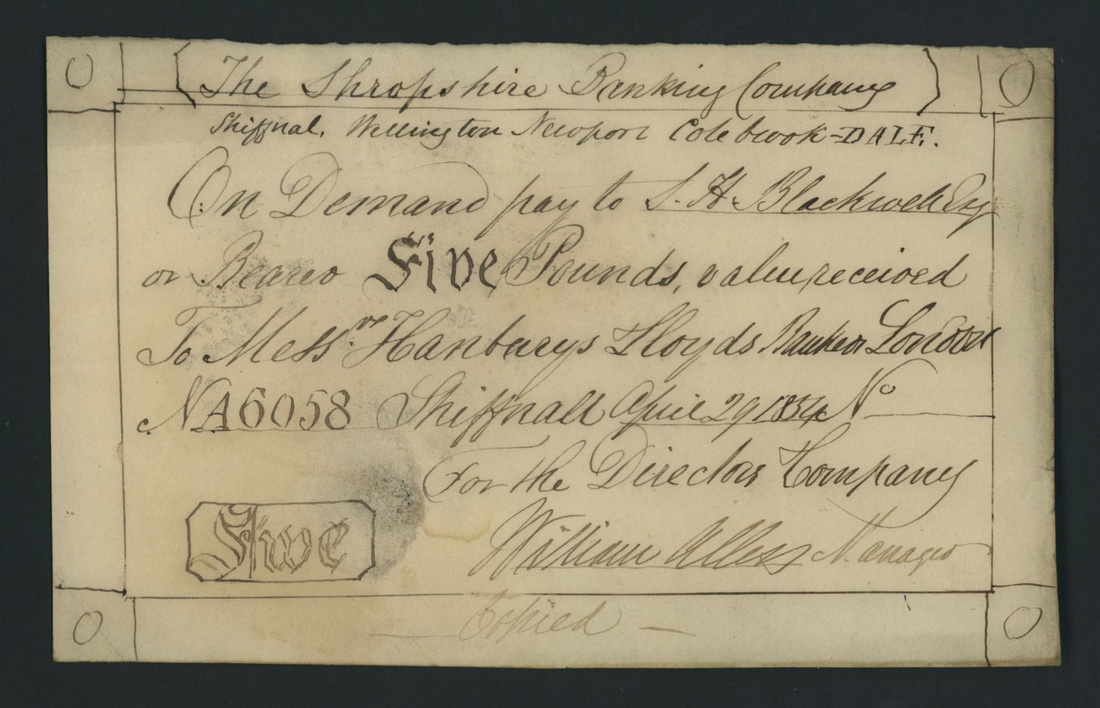 O The Shropshire Banking Company O
Shiffnal, Wellington Newport Colebrook-DALE.
On Demand pay to S. H. Blackwell Esq
or Bearer Five Pounds, value received
To Messrs Hanburys & Lloyds Bankers London
NA6058 Shiffnall April 29 1854 No
For the Directors & Company
Five
William Allen Manager
O Copied O